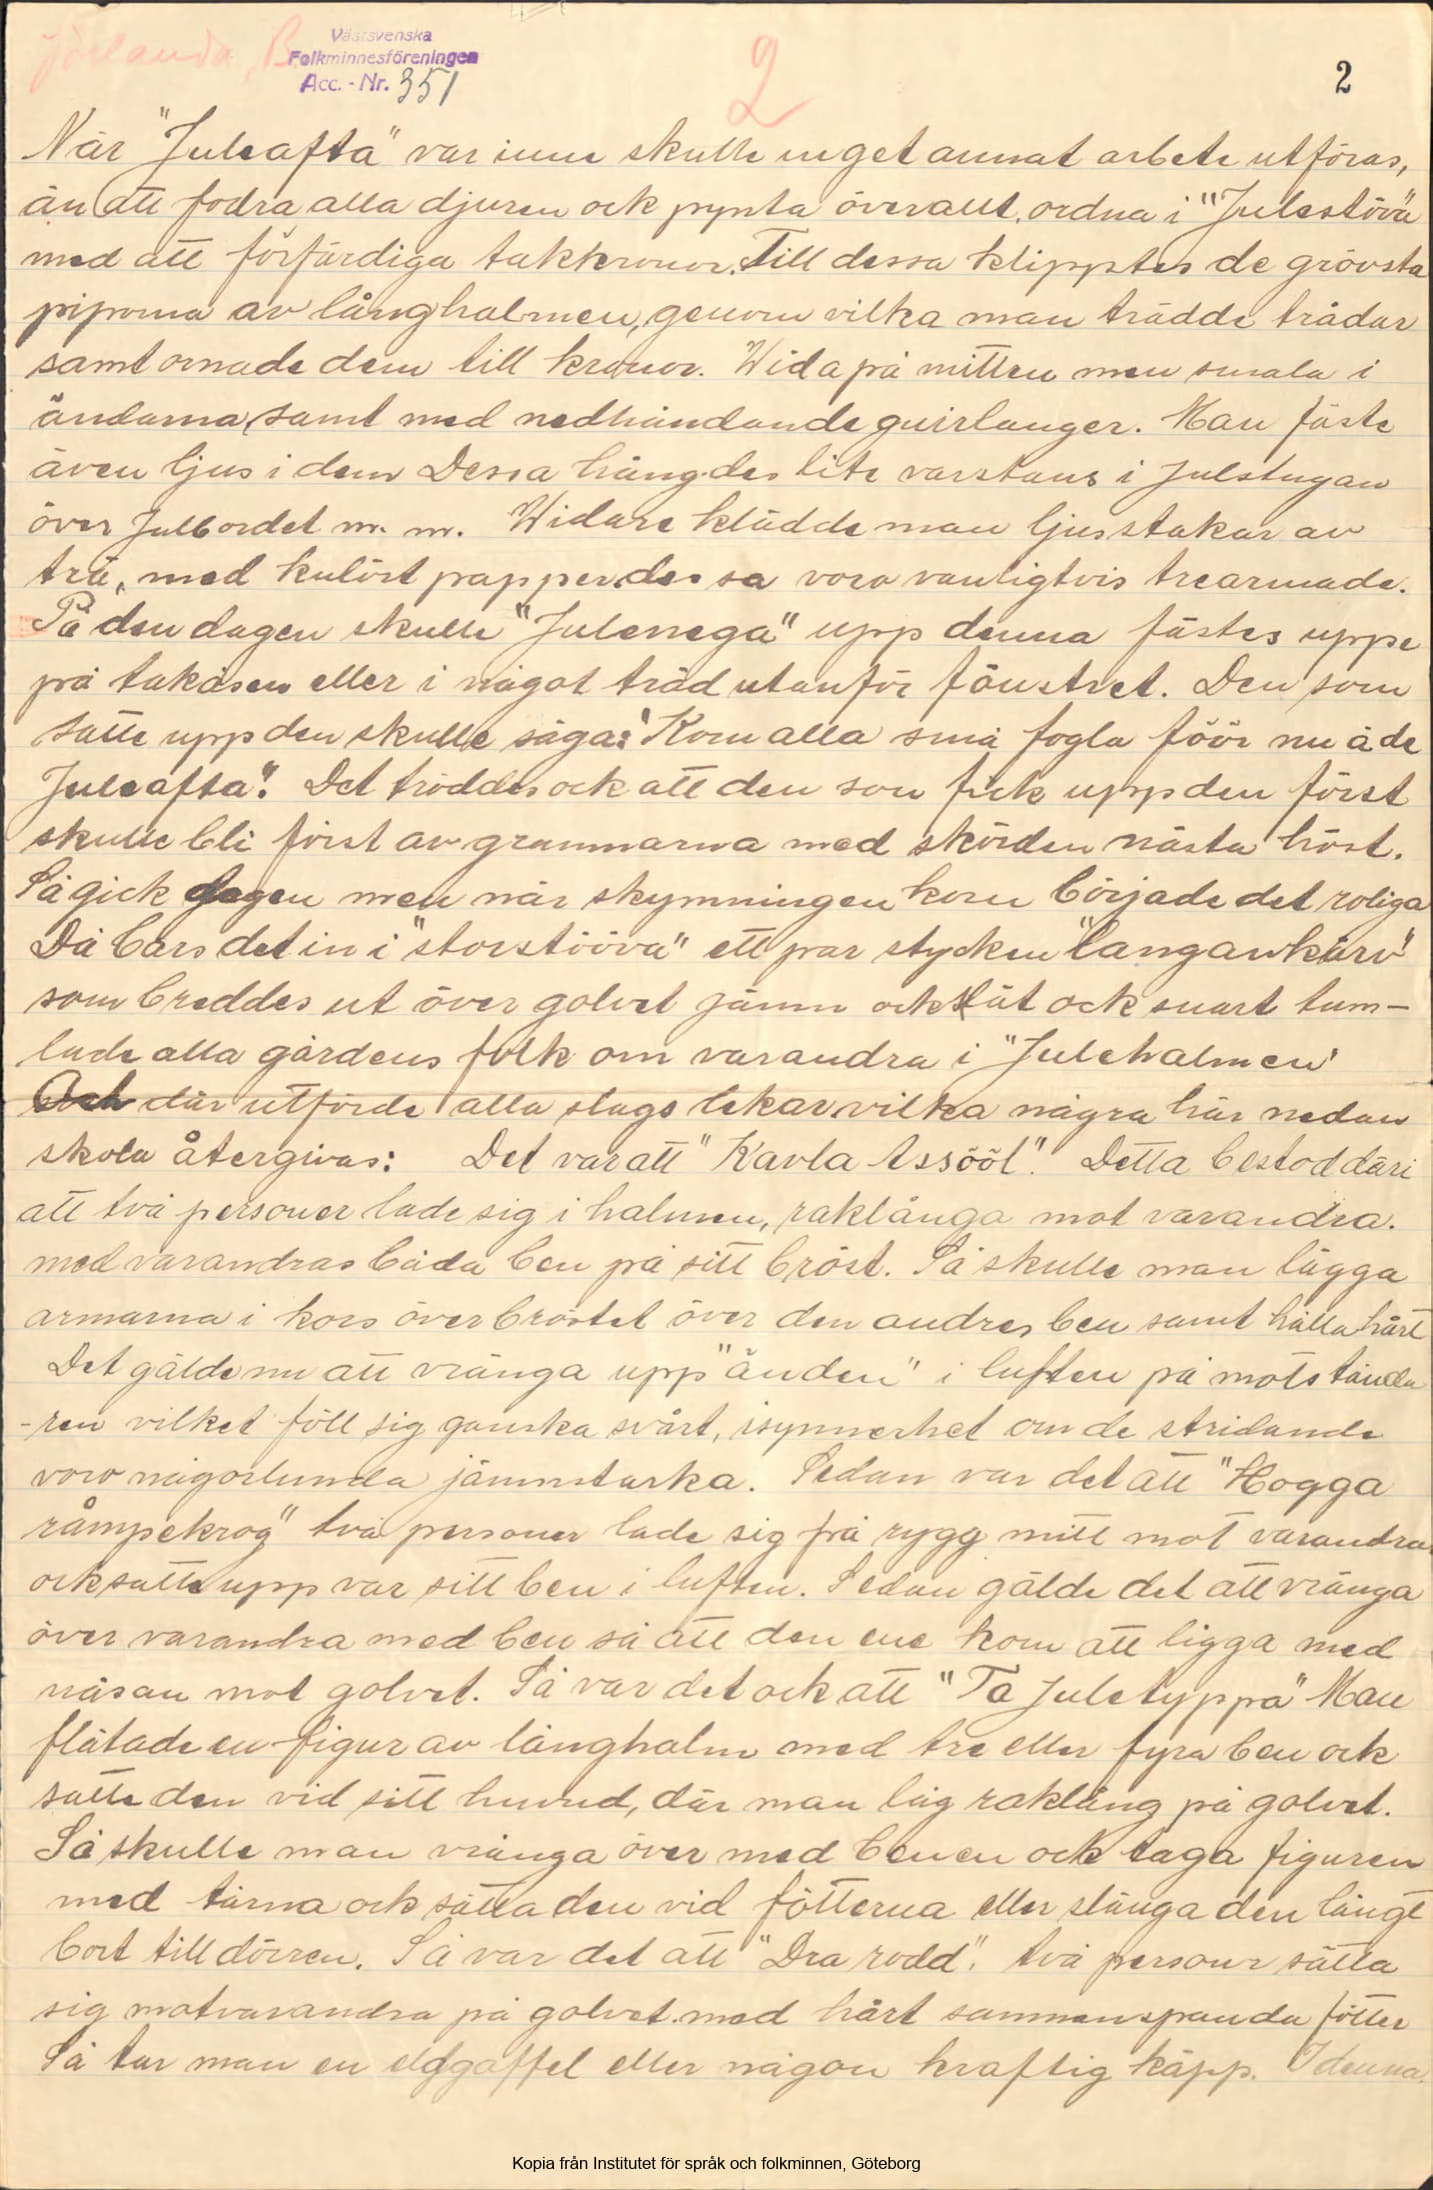 Jörlanda, B.
Västsvenska
Folkminnesföreningen
Acc. - Nr. 351
2
2
När "Juleafta" var inne skulle inget annat arbete utföras,
än att fodra alla djuren ock pynta överallt, ordna i "Julestöva
med att förfärdiga takkronor. Till dessa klipptes de grövsta
piporna av långhalmen, genom vilka man trädde trådar
samt ornade dem till kronor. Wida på mitten men smala i
ändarna, samt med nedhändande guirlanger. Man fäste
även ljus i dem Dessa hängdes lite varstans i Julstugan
över Julbordet m. m. Widare klädde man ljusstakar av
trä, med kulört papper, dessa voro vanligtvis trearmade.
På den dagen skulle "Julenega" upp denna fästes uppe
på takåsen eller i något träd utanför fönstret. Den som
satte upp den skulle säga: "Kom alla små fogla föör nu ä de
Juleafta". Det troddes ock att den som fick upp den först
skulle bli först av grannarna med skörden nästa höst.
Så gick dagen men när skymningen kom började det roliga
Då bars det in i "storstööva" ett par stycken "langawkärv"
som breddes ut över golvet jämn ock tät ock snart tum-
lade alla gårdens folk om varandra i "Julehalmen"
Och där utförde alla slags lekar vilka några här nedan
skola återgivas: Det var att "Kavla Assööl". Detta bestod däri
att två personer lade sig i halmen, raklånga mot varandra.
med varandras båda ben på sitt bröst. Så skulle man lägga
armarna i kors över bröstet över den andres ben samt hålla hårt
Det gälde nu att vränga upp "änden" i luften på motstånda
-ren vilket föll sig ganska svårt, isynnerhet om de stridande
voro någorlunda jämnstarka. Sedan var det att "Hogga
råmpekrog" två personer lade sig på rygg mitt mot varandra
ock satte upp var sitt ben i luften. Sedan gälde det att vränga
över varandra med ben så att den ene kom att ligga med
näsan mot golvet. Så var det ock att "Ta Juletyppa" Man
flätade en figur av långhalm med tre eller fyra ben ock
satte den vid sitt huvud, där man låg raklång på golvet.
Så skulle man vränga över med benen ock taga figuren
med tårna ock sätta den vid fötterna eller slänga den långt
bort till dörren. Så var det att "Dra rodd". två personer sätta
sig motvarandra på golvet med hårt sammenspända fötter
Så tar man en eldgaffel eller någon kraftig käpp. I denna
Kopia från Institutet för språk och folkminnen, Göteborg